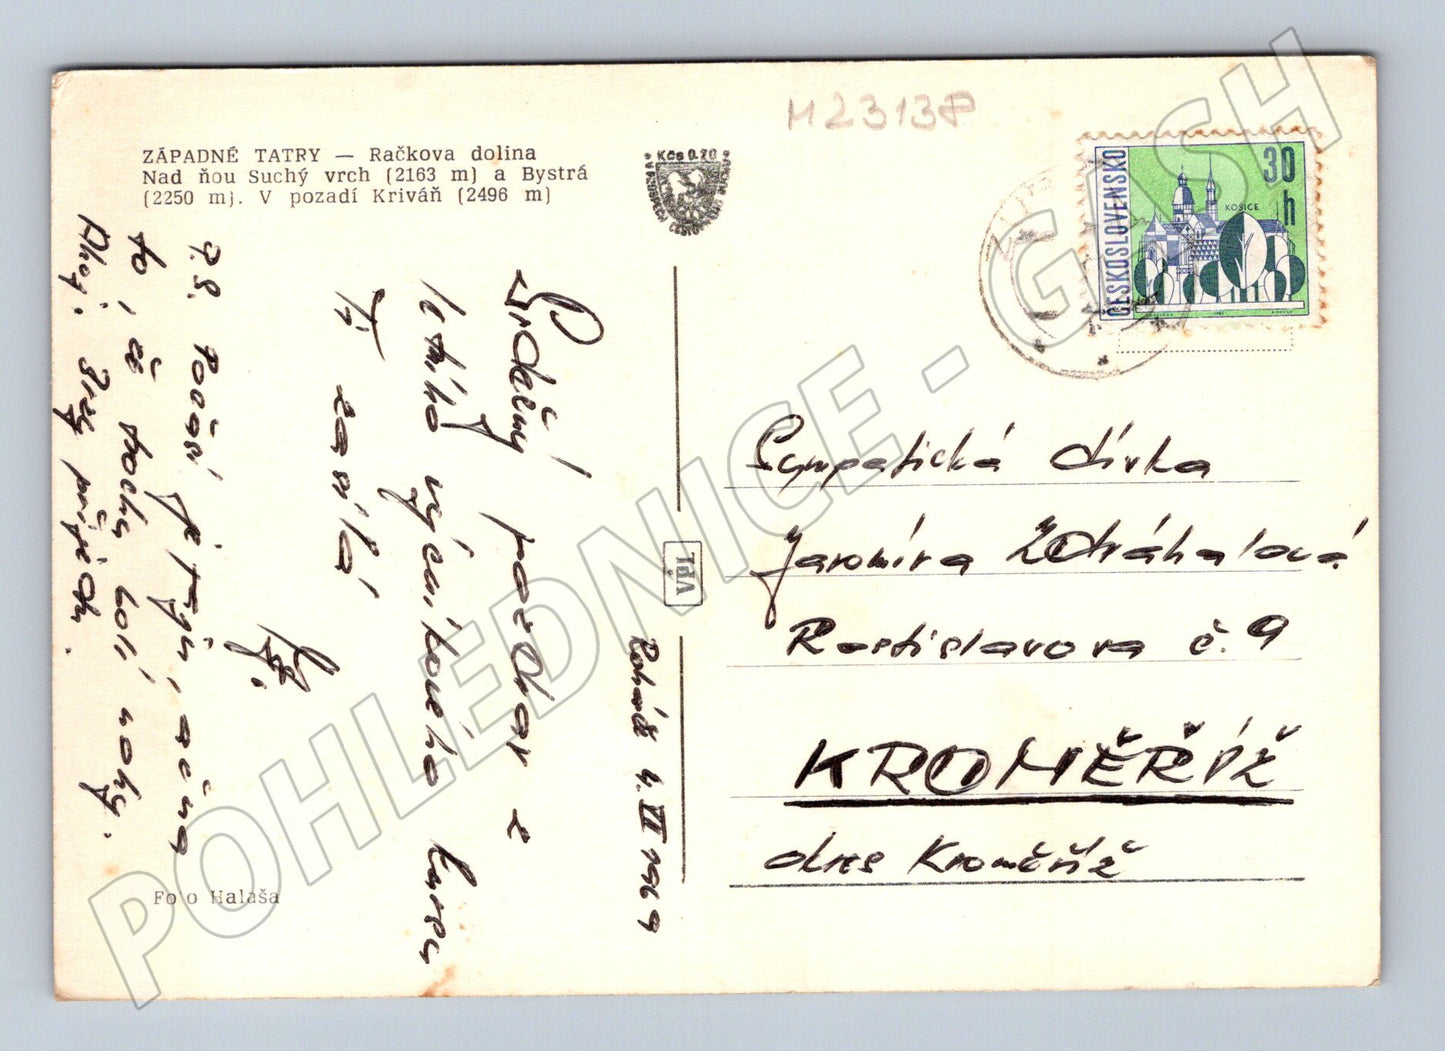 M23138
ZÁPADNÉ TATRY — Račkova dolina
Nad ňou Suchý vrch (2163 m) a Bystrá
(2250 m). V pozadí Kriváň (2496 m)
Kčs 0.70
ČESKOSLOVENSKO
30
h
KOŠICE
Srdečný pozdrav z
letního výcvikového kursu
Ti zasílá
P.S. Počasí je Tryn, a čéna
to, že trochu bolí nohy.
Ahoj. Brzy přijedu.
Roháče 4. VI 1969
VpL
Foto Halaša
Sympatická dívka
Jaromíra Zdráhalová
Rostislavova č. 9
KROMĚŘÍŽ
okres Kroměříž
POHLEDNICE - GASH